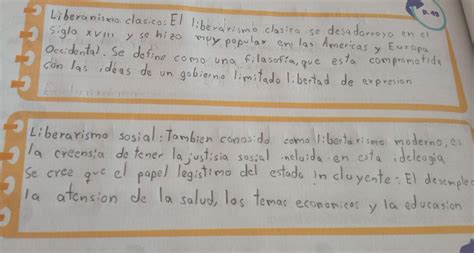 P. 49
Liberanismo clasico: El liberarismo clasico se desadorroyo en el
Siglo XVIII y se hizo muy popular en las Americas y Europa
Occidental. Se define como una filasofía, que esta comprometida
con las ideas de un gobierno limitado libertad de expresion
Liberarismo sosial: Tambien conosido como libertarismo moderno, es
la creensia de tener la justisia sosial incluida en esta ideologia
Se cree que el papel legistimo del estado incluyente: El desemple
la atension de la salud, los temas economicos y la educasion